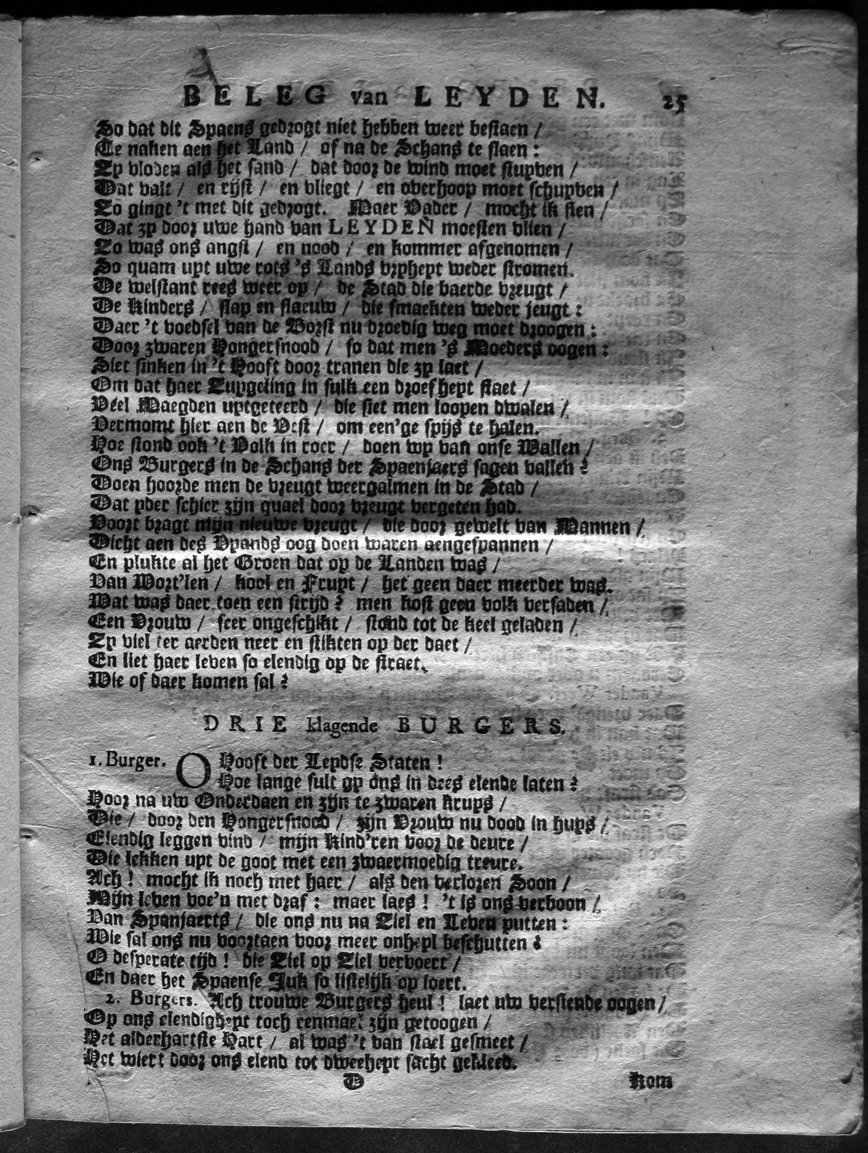 BELEG van LEYDEN. 25
So dat dit Spaens gedrogt niet hebben weer bestaen /
Te naken aen het Land / of na de Schans te slaen :
Zy vloden als het sand / dat door de wind moet stuyven /
Dat valt / en ryst / en vliegt / en overhoop moet schuyven /
Zo gingt 't met dit gedrogt. Maer Vader / mocht ik sien /
Dat zy door uwe hand van LEYDEN moesten vlien /
Zo was ons angst / en nood / en kommer afgenomen /
So quam uyt uwe rots 's Lands vryheyt weder stromen.
De welstant rees weer op / de Stad die baerde vreugt /
De Kinders / slap en flaeuw / die smaekten weder jeugt :
Daer 't voedsel van de Borst nu droevig weg moet droogen :
Door zwaren Hongersnood / so dat men 's Moeders oogen :
Siet sinken in 't Hooft door tranen die zy laet /
Om dat haer Zuygeling in sulk een droefheyt staet /
Veel Maegden uytgeteerd / die siet men loopen dwalen /
Vermomt hier aen de Vest / om een'ge spijs te halen.
Hoe stond ook 't Volk in roer / doen wy van onse Wallen /
Ons Burgers in de Schans der Spaenjaers sagen vallen ?
Doen hoorde men de vreugt weergalmen in de Stad /
Dat yder schier zijn quael door vreugt vergeten had.
Voort bragt mijn nieuwe vreugt / die door gewelt van Mannen /
Dicht aen des Vyands oog doen waren aengespannen /
En plukte al het Groen dat op de Landen was /
Van Wort'len / kool en Fruyt / het geen daer meerder was.
Wat was daer toen een strijd ? men kost geen volk versaden /
Een Vrouw / seer ongeschikt / stond tot de keel geladen /
Zy viel ter aerden neer en stikten op der daet /
En liet haer leven so elendig op de straet.
Wie of daer komen sal ?
DRIE klagende BURGERS.
1. Burger. O Hooft der Leydse Staten !
Hoe lange sult gy ons in dees elende laten ?
Hoor na uw Onderdaen en zijn te zwaren kruys /
Die / door den Hongersnood / zijn Vrouw nu dood in huys /
Elendig leggen vind / mijn Kind'ren voor de deure /
Die lekken uyt de goot met een zwaermoedig treure.
Ach ! mocht ik noch met haer / als den verloren Soon /
Mijn leven voe'n met draf : maer laes ! 't is ons verboon /
Van Spanjaerts / die ons nu na Ziel en Leven putten :
Wie sal ons nu voortaen voor meer onheyl beschutten ?
O desperate tijd ! die Ziel op Ziel vervoert /
En daer het Spaense Juk so listelijk op loert.
2. Burgers. Ach trouwe Burgers heul ! laet uw verstende oogen /
Op ons elendigheyt toch eenmael zijn getoogen /
Het alderhartste Hart / al was 't van stael gesmeet /
Het wiert door ons elend tot dweeheyt sacht gekleed.
D Kom